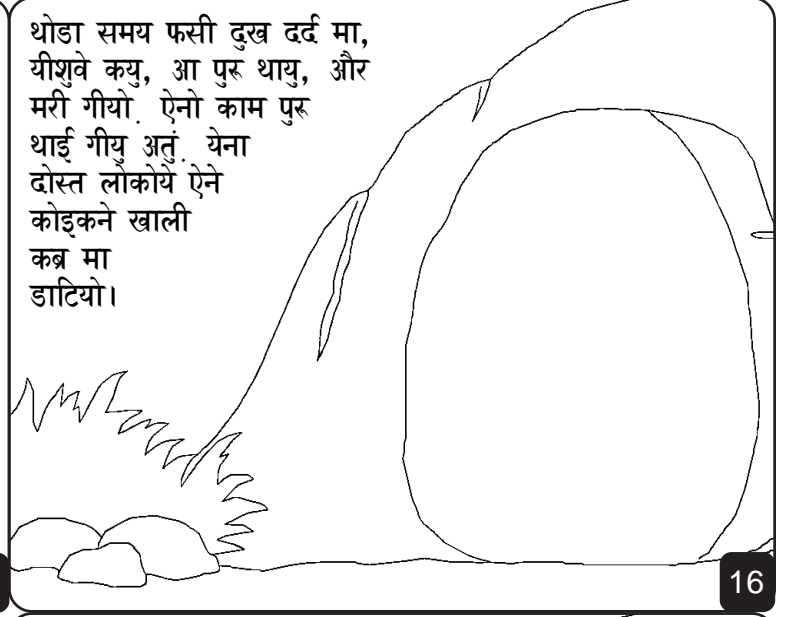 थोडा समय फसी दुख दर्द मा,
यीशुवे कयु, आ पुरू थायु, और
मरी गीयो. ऐनो काम पुरू
थाई गीयु अतुं. येना
दोस्त लोकोये ऐने
कोइकने खाली
कब्र मा
डाटियो।
16